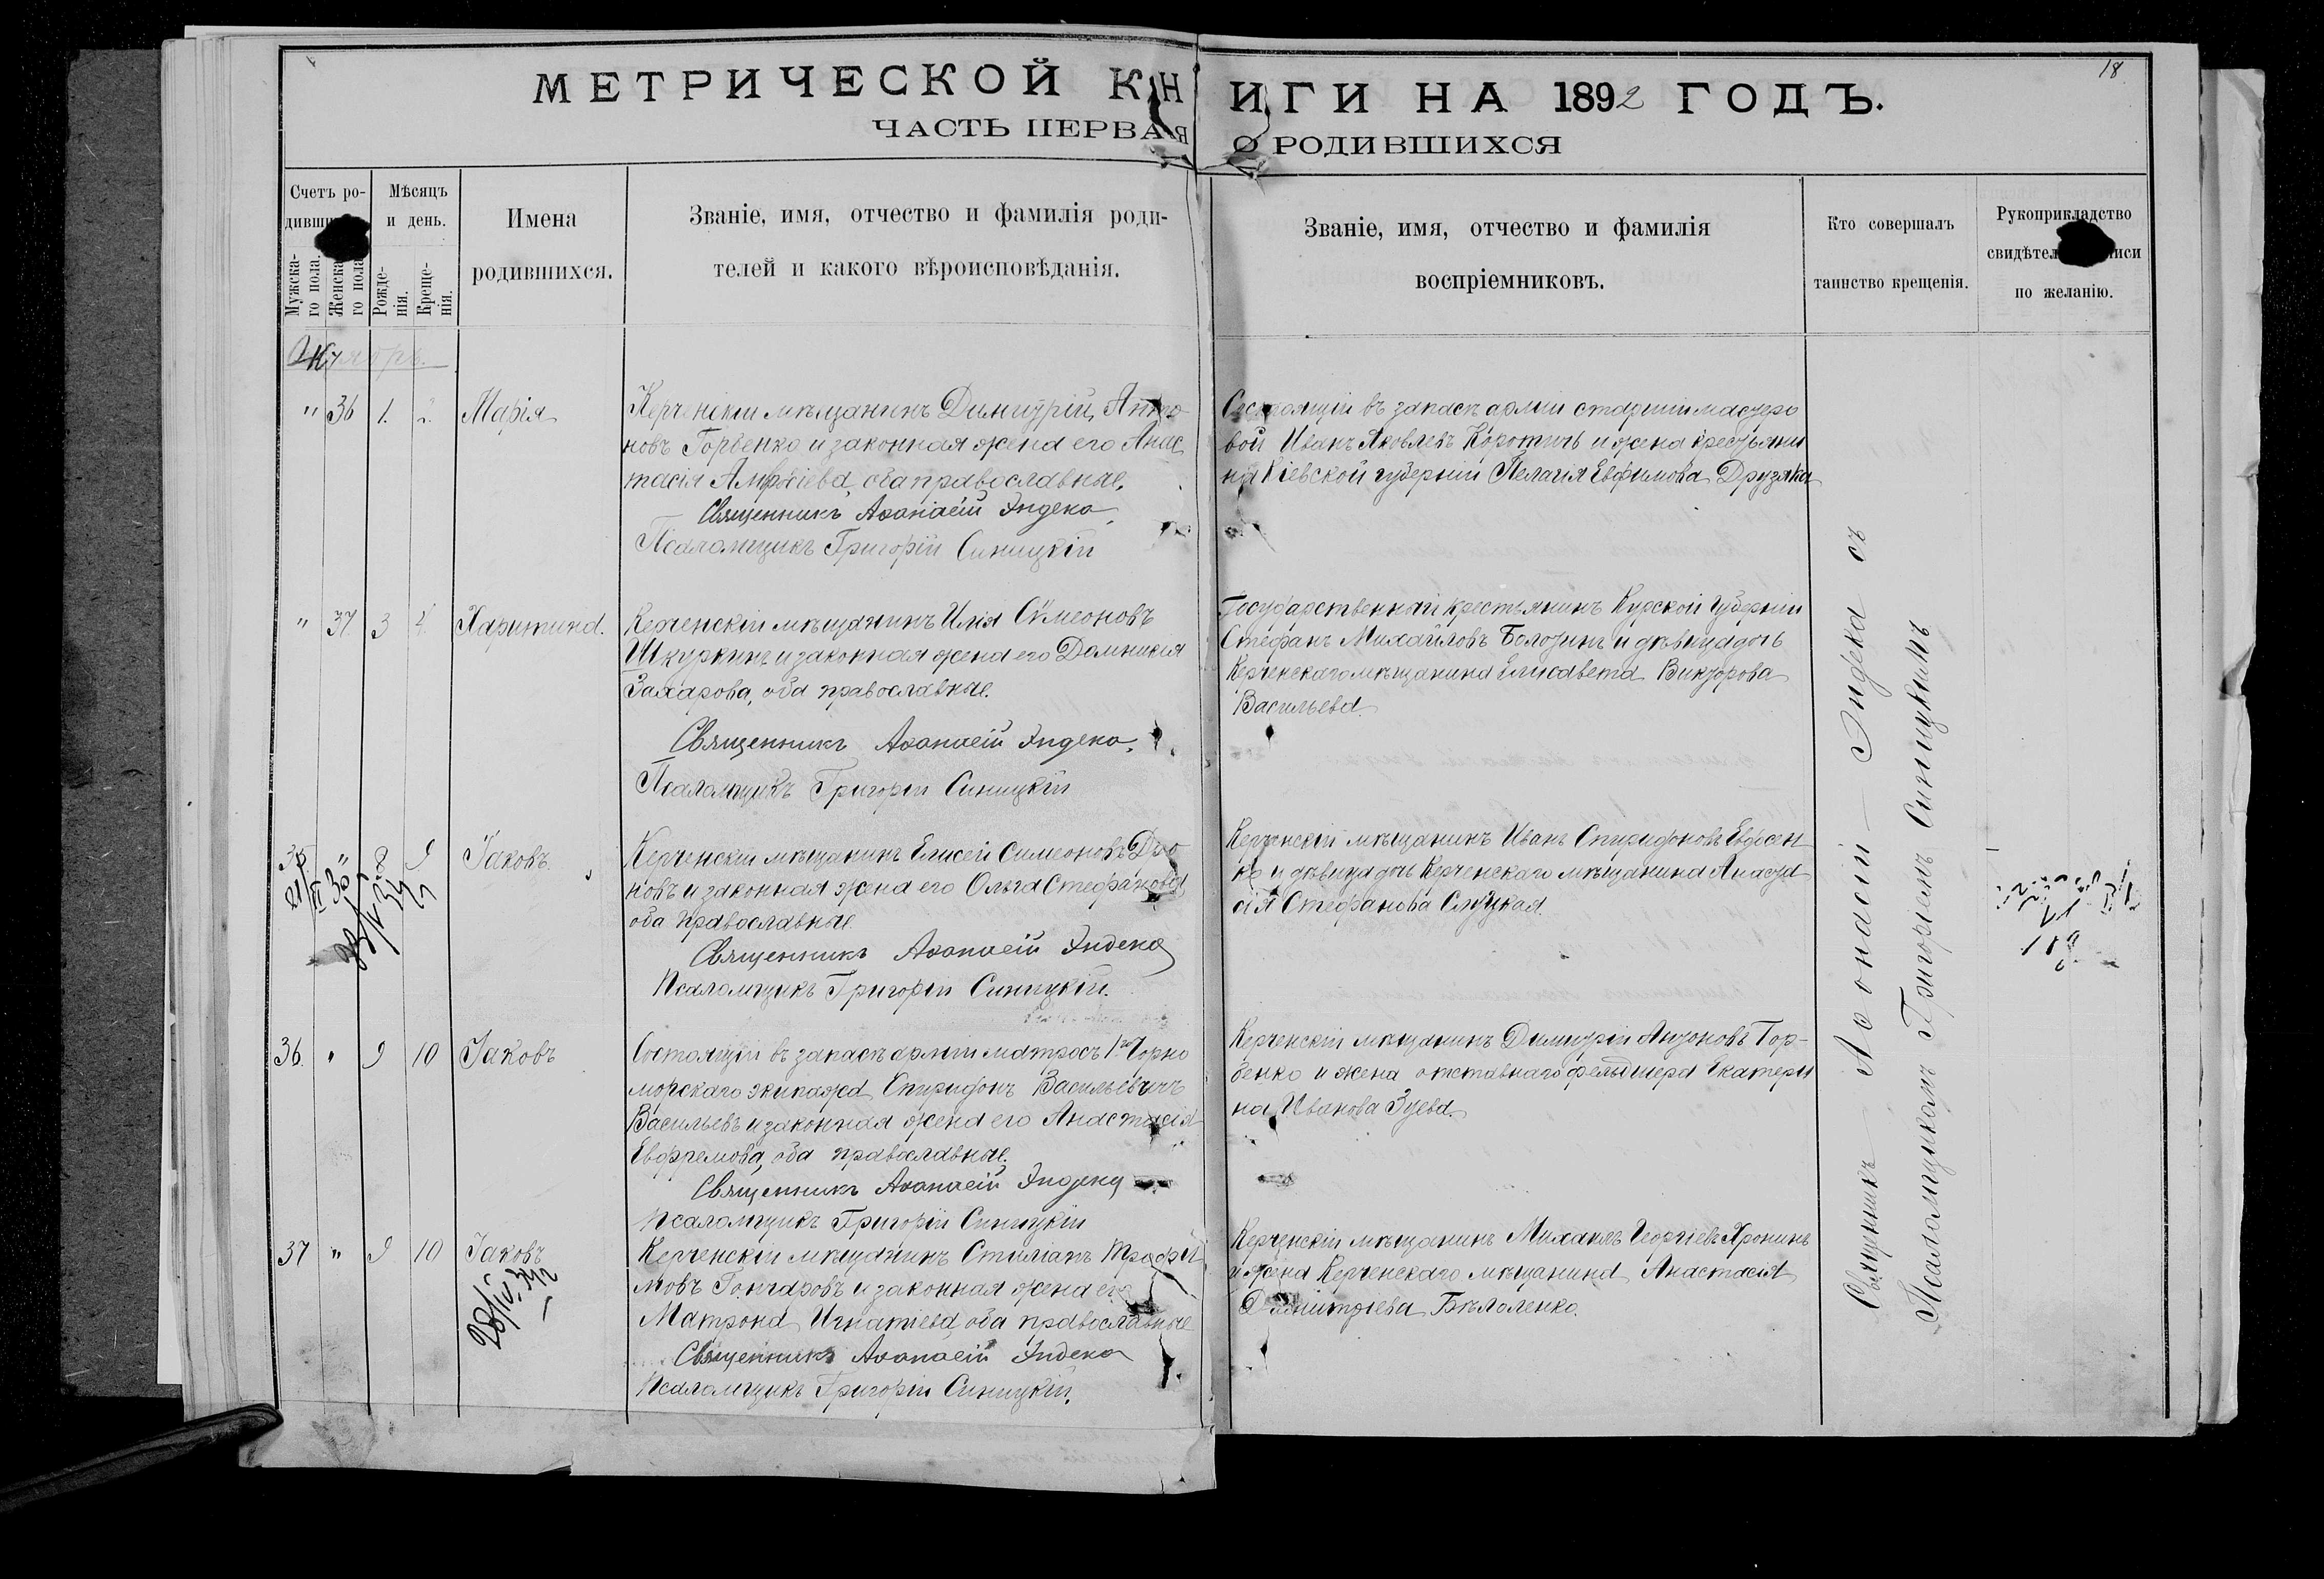 18
МЕТРИЧЕСКОЙ КНИГИ НА 1892 ГОДЪ.
ЧАСТЬ ПЕРВАЯ О РОДИВШИХСЯ
Счетъ ро-
дивш
Мужска-
го пола.
Женска
го пола
Мѣсяцъ
и день.
Рожде-
нія.
Креще-
нія.
Имена
родившихся.
Званіе, имя, отчество и фамилія роди-
телей и какого вѣроисповѣданія.
Званіе, имя, отчество и фамилія
воспріемниковъ.
Кто совершалъ
таинство крещенія.
Рукоприкладство
свидѣтел иси
по желанію.
Октябрь.
" 36 1. 2. Марія
Керченскій мѣщанинъ Димитрій Анто
новъ Горбенко и законная жена его Анас
тасія оба православные.
Священникъ Аѳанасій Индека
Псаломщикъ Григорій Синицкій
Состоящій въ запасѣ арміи старшій мастеро
вой Иванъ Яковлевъ Коротичъ и жена крестьяни
на Кіевской губерніи Пелагія Евфимова Друзяка
" 37 3 4 Харитина.
Керченскій мѣщанинъ Илія Сѵмеоновъ
Шкуркинъ и законная жена его Домникія
Захарова, оба православные.
Священникъ Аѳанасій Индека.
Псаломщикъ Григорій Синицкій
Государственный крестьянинъ Курской губерніи
Стефанъ Михайловъ Болозинъ и дѣвица дочь
Керченскаго мѣщанина Елисавета Викторова
Васильева.
35 " 8 9 Іаковъ.
Керченскій мѣщанинъ Елисей Симеоновъ
новъ и законная жена его Ольга Стефанова
оба православные.
Священникъ Аѳанасій Индека
Псаломщикъ Григорій Синицкій.
Керченскій мѣщанинъ Иванъ Спиридоновъ Евфосен
ко и дѣвица дочь Керченскаго мѣщанина Анаста
сія Стефанова Слуцкая.
36. " 9 10 Іаковъ
Состоящій въ запасѣ арміи матросъ 1го Черно
морскаго экипажа Спиридонъ Васильевичъ
Васильевъ и законная жена его Анастасія
Евфремова, оба православные.
Священникъ Аѳанасій Индека
Псаломщикъ Григорій Синицкій
Керченскій мѣщанинъ Димитрій Антоновъ Гор-
бенко и жена отставнаго фельдшера Екатери
на Иванова Зуева.
37 " 9 10 Іаковъ
28/IV 342
Керченскій мѣщанинъ Стиліанъ Трофи
мовъ Гончаровъ и законная жена его
Матрона Игнатіева, оба православные
Священникъ Аѳанасій Индека
Псаломщикъ Григорій Синицкій.
Керченскій мѣщанинъ Михаилъ Георгіевъ Хронинъ
и жена Керченскаго мѣщанина Анастасія
Димитріева Бѣлоленко.
Священникъ Аѳонасій – Индека съ
Псаломщикомъ Григоріемъ Синицкимъ